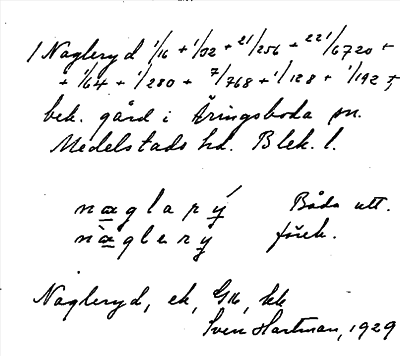 1 Nagleryd 1/16 + 1/32 + 21/256 + 221/6720 +
+ 1/64 + 1/280 + 7/768 + 1/128 + 1/192 +
bek. gård i Åringsboda sn.
Medelstads hd. Blek. l.
naglarý Båda utt.
nàglery förek.
Nagleryd, ek, Gk, kk
Sven Hartman, 1929